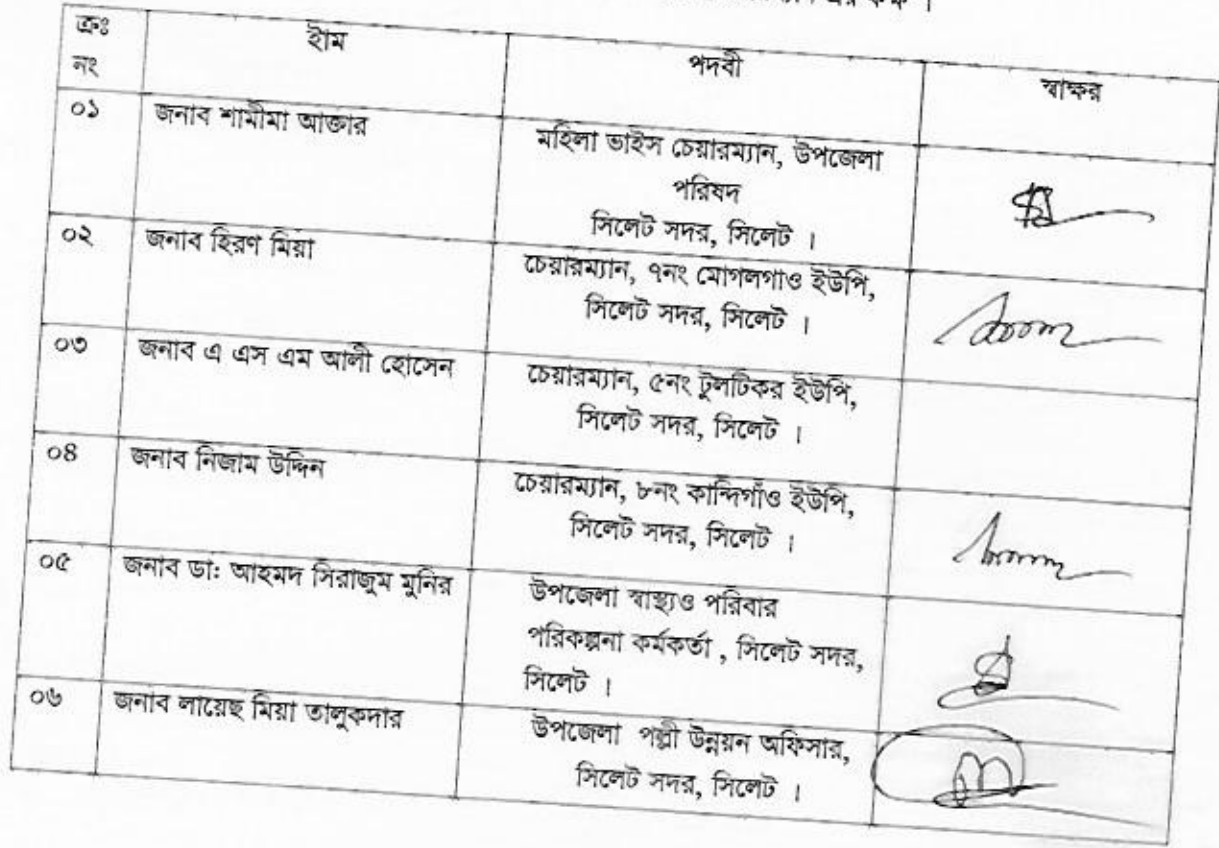 এর কক্ষ ।
ক্রঃ নং ইাম পদবী স্বাক্ষর
০১ জনাব শামীমা আক্তার মহিলা ভাইস চেয়ারম্যান, উপজেলা
পরিষদ
সিলেট সদর, সিলেট ।
০২ জনাব হিরণ মিয়া চেয়ারম্যান, ৭নং মোগলগাও ইউপি,
সিলেট সদর, সিলেট ।
০৩ জনাব এ এস এম আলী হোসেন চেয়ারম্যান, ৫নং টুলটিকর ইউপি,
সিলেট সদর, সিলেট ।
০৪ জনাব নিজাম উদ্দিন চেয়ারম্যান, ৮নং কান্দিগাঁও ইউপি,
সিলেট সদর, সিলেট ।
০৫ জনাব ডা: আহমদ সিরাজুম মুনির উপজেলা স্বাস্থ্যও পরিবার
পরিকল্পনা কর্মকর্তা , সিলেট সদর,
সিলেট ।
০৬ জনাব লায়েছ মিয়া তালুকদার উপজেলা পল্লী উন্নয়ন অফিসার,
সিলেট সদর, সিলেট ।